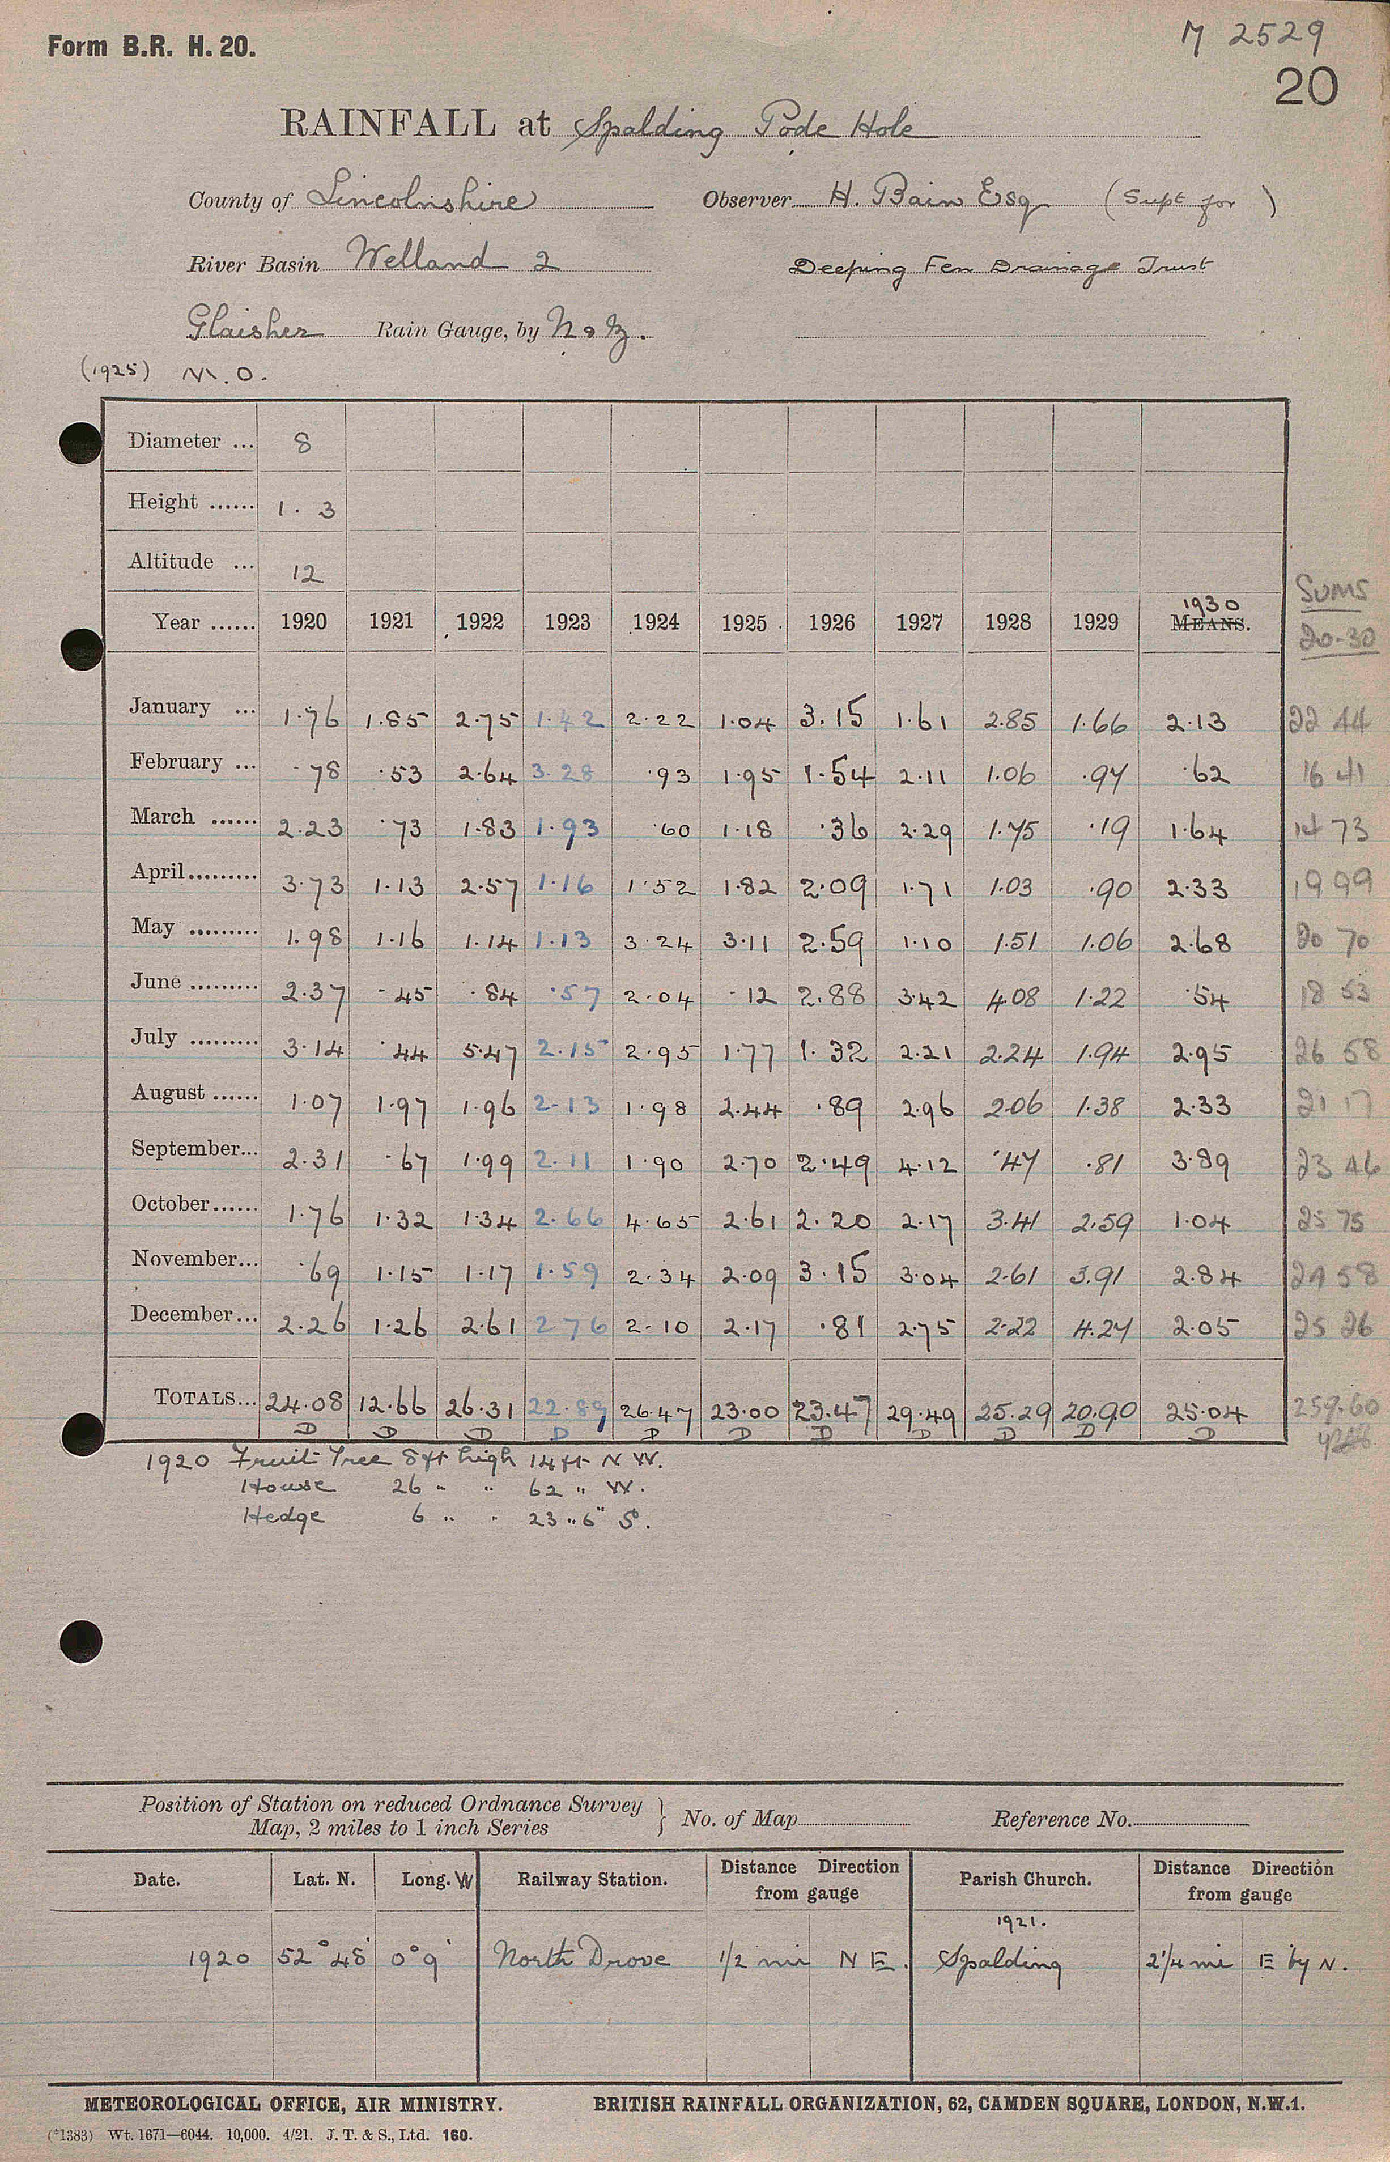 Form B.R. H. 20.
M 2529
20
RAINFALL at Spalding Pode Hole
County of Lincolnshire Observer H. Bain Esq (Supt for )
River Basin Welland 2 Deeping Fen Drainage Trust
Glaisher Rain Gauge, by N & Z.
(1925) M.O.
Diameter ... 8
Height ...... 1.3
Altitude ... 12
Sums
1930
Year ...... 1920 1921 1922 1923 1924 1925 1926 1927 1928 1929 MEANS. 20-30
January ... 1.76 1.85 2.75 1.42 2.22 1.04 3.15 1.61 2.85 1.66 2.13 22 44
February ... .78 .53 2.64 3.28 .93 1.95 1.54 2.11 1.06 .97 .62 16 41
March ...... 2.23 .73 1.83 1.93 .60 1.18 .36 2.29 1.75 .19 1.64 14 73
April......... 3.73 1.13 2.57 1.16 1.52 1.82 2.09 1.71 1.03 .90 2.33 19 99
May ......... 1.98 1.16 1.14 1.13 3.24 3.11 2.59 1.10 1.51 1.06 2.68 20 70
June ......... 2.37 .45 .84 .57 2.04 .12 2.88 3.42 4.08 1.22 .54 18 53
July ......... 3.14 .44 5.47 2.15 2.95 1.77 1.32 2.21 2.24 1.94 2.95 26 58
August ...... 1.07 1.97 1.96 2.13 1.98 2.44 .89 2.96 2.06 1.38 2.33 21 17
September... 2.31 .67 1.99 2.11 1.90 2.70 2.49 4.12 .47 .81 3.89 23 46
October...... 1.76 1.32 1.34 2.66 4.65 2.61 2.20 2.17 3.41 2.59 1.04 25 75
November... .69 1.15 1.17 1.59 2.34 2.09 3.15 3.04 2.61 3.91 2.84 24 58
December... 2.26 1.26 2.61 2.76 2.10 2.17 .81 2.75 2.22 4.27 2.05 25 26
TOTALS... 24.08 12.66 26.31 22.89 26.47 23.00 23.47 29.49 25.29 20.90 25.04 259.60
D D D D D D D D D D D
1920 Fruit Tree 8 ft high 14 ft N W.
House 26 " " 62 " W.
Hedge 6 " " 23 " 6" S.
Position of Station on reduced Ordnance Survey
Map, 2 miles to 1 inch Series } No. of Map Reference No.
Date. Lat. N. Long. W Railway Station. Distance Direction from gauge Parish Church. Distance Direction from gauge
1921.
1920 52° 48' 0° 9' North Drove 1/2 mi N E. Spalding 2 1/4 mi E by N.
METEOROLOGICAL OFFICE, AIR MINISTRY. BRITISH RAINFALL ORGANIZATION, 62, CAMDEN SQUARE, LONDON, N.W.1.
(*1383) Wt. 1671—6044. 10,000. 4/21. J. T. & S., Ltd. 160.